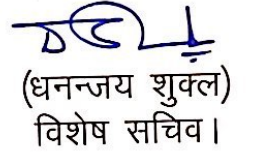 (धनन्जय शुक्ल)
विशेष सचिव।